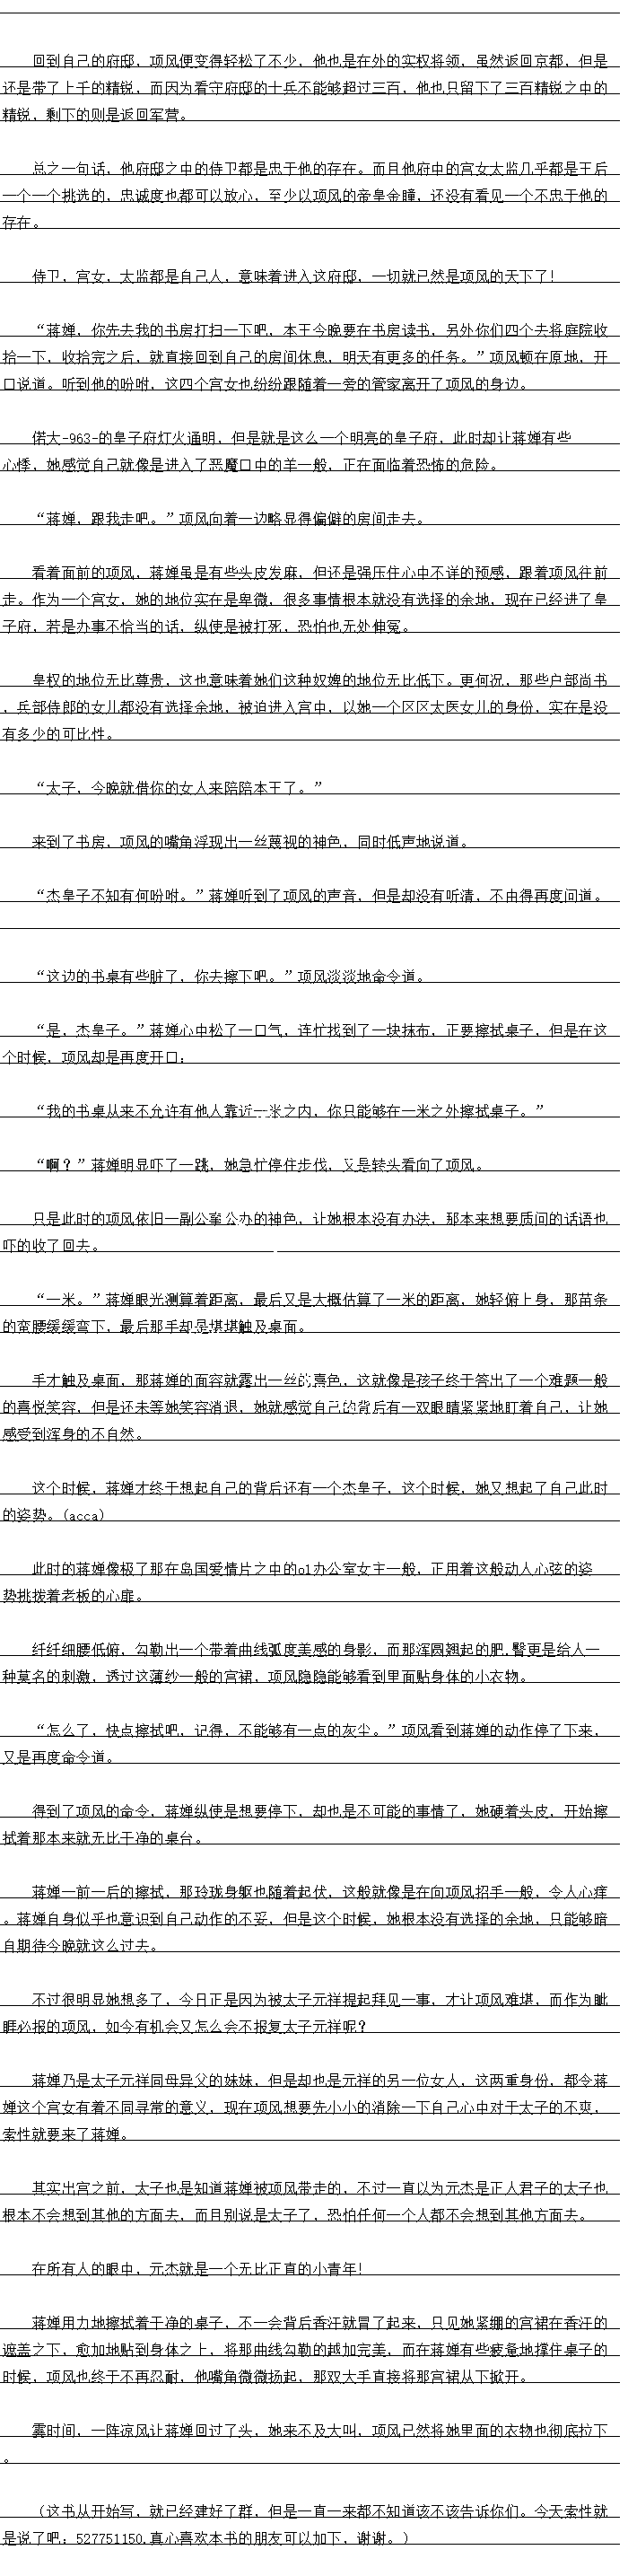 回到自己的府邸，项风便变得轻松了不少，他也是在外的实权将领，虽然返回京都，但是
还是带了上千的精锐，而因为看守府邸的士兵不能够超过三百，他也只留下了三百精锐之中的
精锐，剩下的则是返回军营。
总之一句话，他府邸之中的侍卫都是忠于他的存在。而且他府中的宫女太监几乎都是王后
一个一个挑选的，忠诚度也都可以放心，至少以项风的帝皇金瞳，还没有看见一个不忠于他的
存在。
侍卫，宫女，太监都是自己人，意味着进入这府邸，一切就已然是项风的天下了！
“蒋婵，你先去我的书房打扫一下吧，本王今晚要在书房读书，另外你们四个去将庭院收
拾一下，收拾完之后，就直接回到自己的房间休息，明天有更多的任务。”项风顿在原地，开
口说道。听到他的吩咐，这四个宫女也纷纷跟随着一旁的管家离开了项风的身边。
偌大-963-的皇子府灯火通明，但是就是这么一个明亮的皇子府，此时却让蒋婵有些
心悸，她感觉自己就像是进入了恶魔口中的羊一般，正在面临着恐怖的危险。
“蒋婵，跟我走吧。”项风向着一边略显得偏僻的房间走去。
看着面前的项风，蒋婵虽是有些头皮发麻，但还是强压住心中不详的预感，跟着项风往前
走。作为一个宫女，她的地位实在是卑微，很多事情根本就没有选择的余地，现在已经进了皇
子府，若是办事不恰当的话，纵使是被打死，恐怕也无处伸冤。
皇权的地位无比尊贵，这也意味着她们这种奴婢的地位无比低下。更何况，那些户部尚书
，兵部侍郎的女儿都没有选择余地，被迫进入宫中，以她一个区区太医女儿的身份，实在是没
有多少的可比性。
“太子，今晚就借你的女人来陪陪本王了。”
来到了书房，项风的嘴角浮现出一丝蔑视的神色，同时低声地说道。
“杰皇子不知有何吩咐。”蒋婵听到了项风的声音，但是却没有听清，不由得再度问道。
“这边的书桌有些脏了，你去擦下吧。”项风淡淡地命令道。
“是，杰皇子。”蒋婵心中松了一口气，连忙找到了一块抹布，正要擦拭桌子，但是在这
个时候，项风却是再度开口：
“我的书桌从来不允许有他人靠近一米之内，你只能够在一米之外擦拭桌子。”
“啊？”蒋婵明显吓了一跳，她急忙停住步伐，又是转头看向了项风。
只是此时的项风依旧一副公事公办的神色，让她根本没有办法，那本来想要质问的话语也
吓的收了回去。
“一米。”蒋婵眼光测算着距离，最后又是大概估算了一米的距离，她轻俯上身，那苗条
的蛮腰缓缓弯下，最后那手却是堪堪触及桌面。
手才触及桌面，那蒋婵的面容就露出一丝的喜色，这就像是孩子终于答出了一个难题一般
的喜悦笑容，但是还未等她笑容消退，她就感觉自己的背后有一双眼睛紧紧地盯着自己，让她
感受到浑身的不自然。
这个时候，蒋婵才终于想起自己的背后还有一个杰皇子，这个时候，她又想起了自己此时
的姿势。(acca)
此时的蒋婵像极了那在岛国爱情片之中的ol办公室女主一般，正用着这般动人心弦的姿
势挑拨着老板的心扉。
纤纤细腰低俯，勾勒出一个带着曲线弧度美感的身影，而那浑圆翘起的肥.臀更是给人一
种莫名的刺激，透过这薄纱一般的宫裙，项风隐隐能够看到里面贴身体的小衣物。
“怎么了，快点擦拭吧，记得，不能够有一点的灰尘。”项风看到蒋婵的动作停了下来，
又是再度命令道。
得到了项风的命令，蒋婵纵使是想要停下，却也是不可能的事情了，她硬着头皮，开始擦
拭着那本来就无比干净的桌台。
蒋婵一前一后的擦拭，那玲珑身躯也随着起伏，这般就像是在向项风招手一般，令人心痒
。蒋婵自身似乎也意识到自己动作的不妥，但是这个时候，她根本没有选择的余地，只能够暗
自期待今晚就这么过去。
不过很明显她想多了，今日正是因为被太子元祥提起拜见一事，才让项风难堪，而作为睚
眦必报的项风，如今有机会又怎么会不报复太子元祥呢？
蒋婵乃是太子元祥同母异父的妹妹，但是却也是元祥的另一位女人，这两重身份，都令蒋
婵这个宫女有着不同寻常的意义，现在项风想要先小小的消除一下自己心中对于太子的不爽，
索性就要来了蒋婵。
其实出宫之前，太子也是知道蒋婵被项风带走的，不过一直以为元杰是正人君子的太子也
根本不会想到其他的方面去，而且别说是太子了，恐怕任何一个人都不会想到其他方面去。
在所有人的眼中，元杰就是一个无比正直的小青年！
蒋婵用力地擦拭着干净的桌子，不一会背后香汗就冒了起来，只见她紧绷的宫裙在香汗的
遮盖之下，愈加地贴到身体之上，将那曲线勾勒的越加完美，而在蒋婵有些疲惫地撑住桌子的
时候，项风也终于不再忍耐，他嘴角微微扬起，那双大手直接将那宫裙从下掀开。
霎时间，一阵凉风让蒋婵回过了头，她来不及大叫，项风已然将她里面的衣物也彻底拉下
。
（这书从开始写，就已经建好了群，但是一直一来都不知道该不该告诉你们。今天索性就
是说了吧：527751150.真心喜欢本书的朋友可以加下，谢谢。）